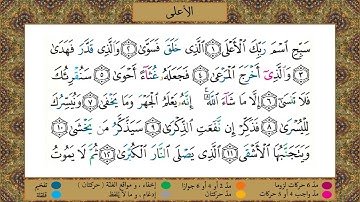 الأعلى
سَبِّحِ ٱسْمَ رَبِّكَ ٱلْأَعْلَى ١ ٱلَّذِى خَلَقَ فَسَوَّىٰ ٢ وَٱلَّذِى قَدَّرَ فَهَدَىٰ
٣ وَٱلَّذِىٓ أَخْرَجَ ٱلْمَرْعَىٰ ٤ فَجَعَلَهُۥ غُثَآءً أَحْوَىٰ ٥ سَنُقْرِئُكَ
فَلَا تَنسَىٰٓ ٦ إِلَّا مَا شَآءَ ٱللَّهُ ۚ إِنَّهُۥ يَعْلَمُ ٱلْجَهْرَ وَمَا يَخْفَىٰ ٧ وَنُيَسِّرُكَ
لِلْيُسْرَىٰ ٨ فَذَكِّرْ إِن نَّفَعَتِ ٱلذِّكْرَىٰ ٩ سَيَذَّكَّرُ مَن يَخْشَىٰ ١٠
وَيَتَجَنَّبُهَا ٱلْأَشْقَى ١١ ٱلَّذِى يَصْلَى ٱلنَّارَ ٱلْكُبْرَىٰ ١٢ ثُمَّ لَا يَمُوتُ
مد ٦ حركات لزوما مد ٢ أو ٤ أو ٦ جوازا إخفاء، و مواقع الغنة (حركتان) تفخيم
مد واجب ٤ أو ٥ حركات مد حركتان إدغام، و ما لا يلفظ قلقلة